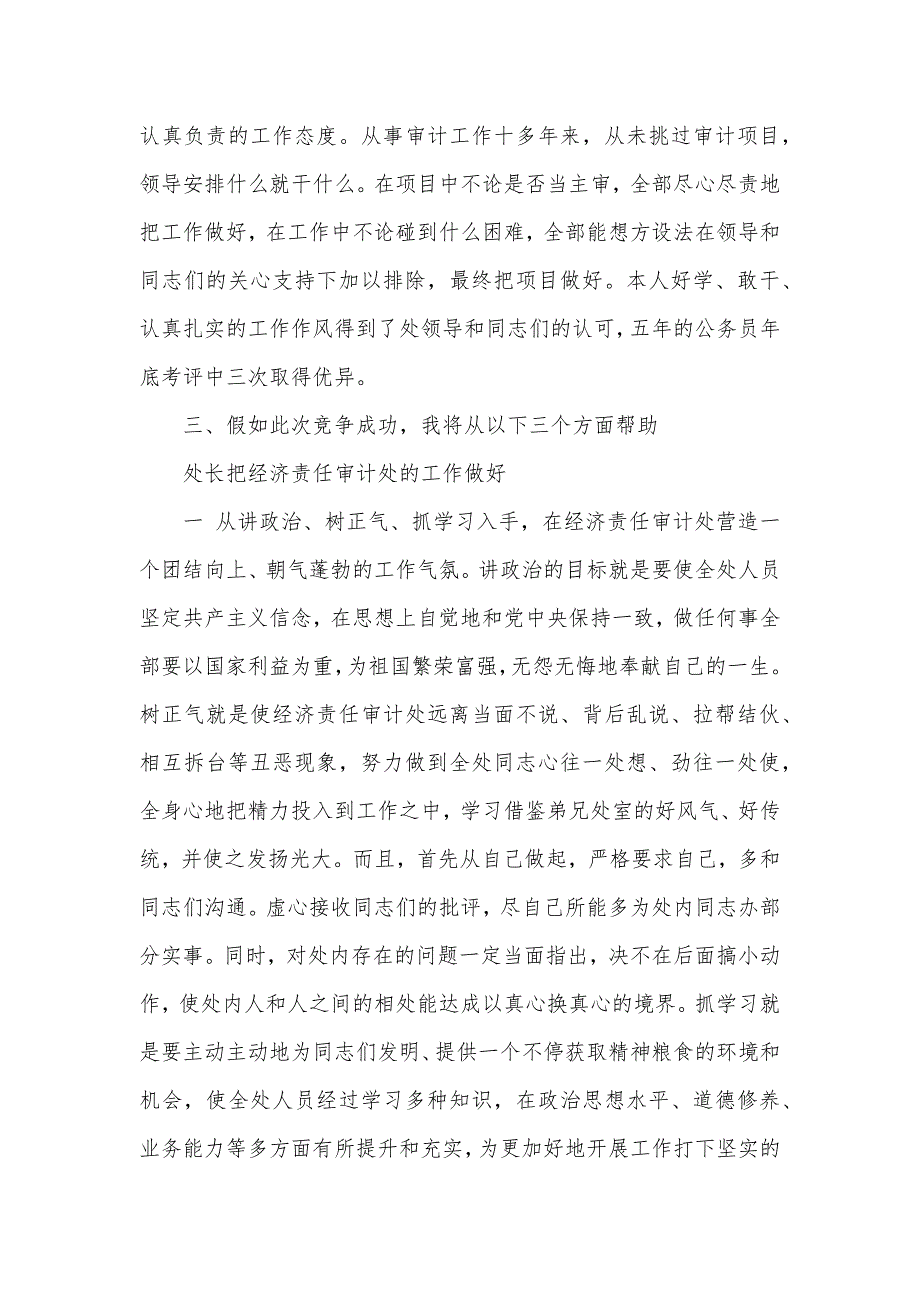 认真负责的工作态度。从事审计工作十多年来，从未挑过审计项目，
领导安排什么就干什么。在项目中不论是否当主审，全部尽心尽责地
把工作做好，在工作中不论碰到什么困难，全部能想方设法在领导和
同志们的关心支持下加以排除，最终把项目做好。本人好学、敢干、
认真扎实的工作作风得到了处领导和同志们的认可，五年的公务员年
底考评中三次取得优异。
三、假如此次竞争成功，我将从以下三个方面帮助
处长把经济责任审计处的工作做好
一 从讲政治、树正气、抓学习入手，在经济责任审计处营造一
个团结向上、朝气蓬勃的工作气氛。讲政治的目标就是要使全处人员
坚定共产主义信念，在思想上自觉地和党中央保持一致，做任何事全
部要以国家利益为重，为祖国繁荣富强，无怨无悔地奉献自己的一生。
树正气就是使经济责任审计处远离当面不说、背后乱说、拉帮结伙、
相互拆台等丑恶现象，努力做到全处同志心往一处想、劲往一处使，
全身心地把精力投入到工作之中，学习借鉴弟兄处室的好风气、好传
统，并使之发扬光大。而且，首先从自己做起，严格要求自己，多和
同志们沟通。虚心接收同志们的批评，尽自己所能多为处内同志办部
分实事。同时，对处内存在的问题一定当面指出，决不在后面搞小动
作，使处内人和人之间的相处能达成以真心换真心的境界。抓学习就
是要主动主动地为同志们发明、提供一个不停获取精神粮食的环境和
机会，使全处人员经过学习多种知识，在政治思想水平、道德修养、
业务能力等多方面有所提升和充实，为更加好地开展工作打下坚实的